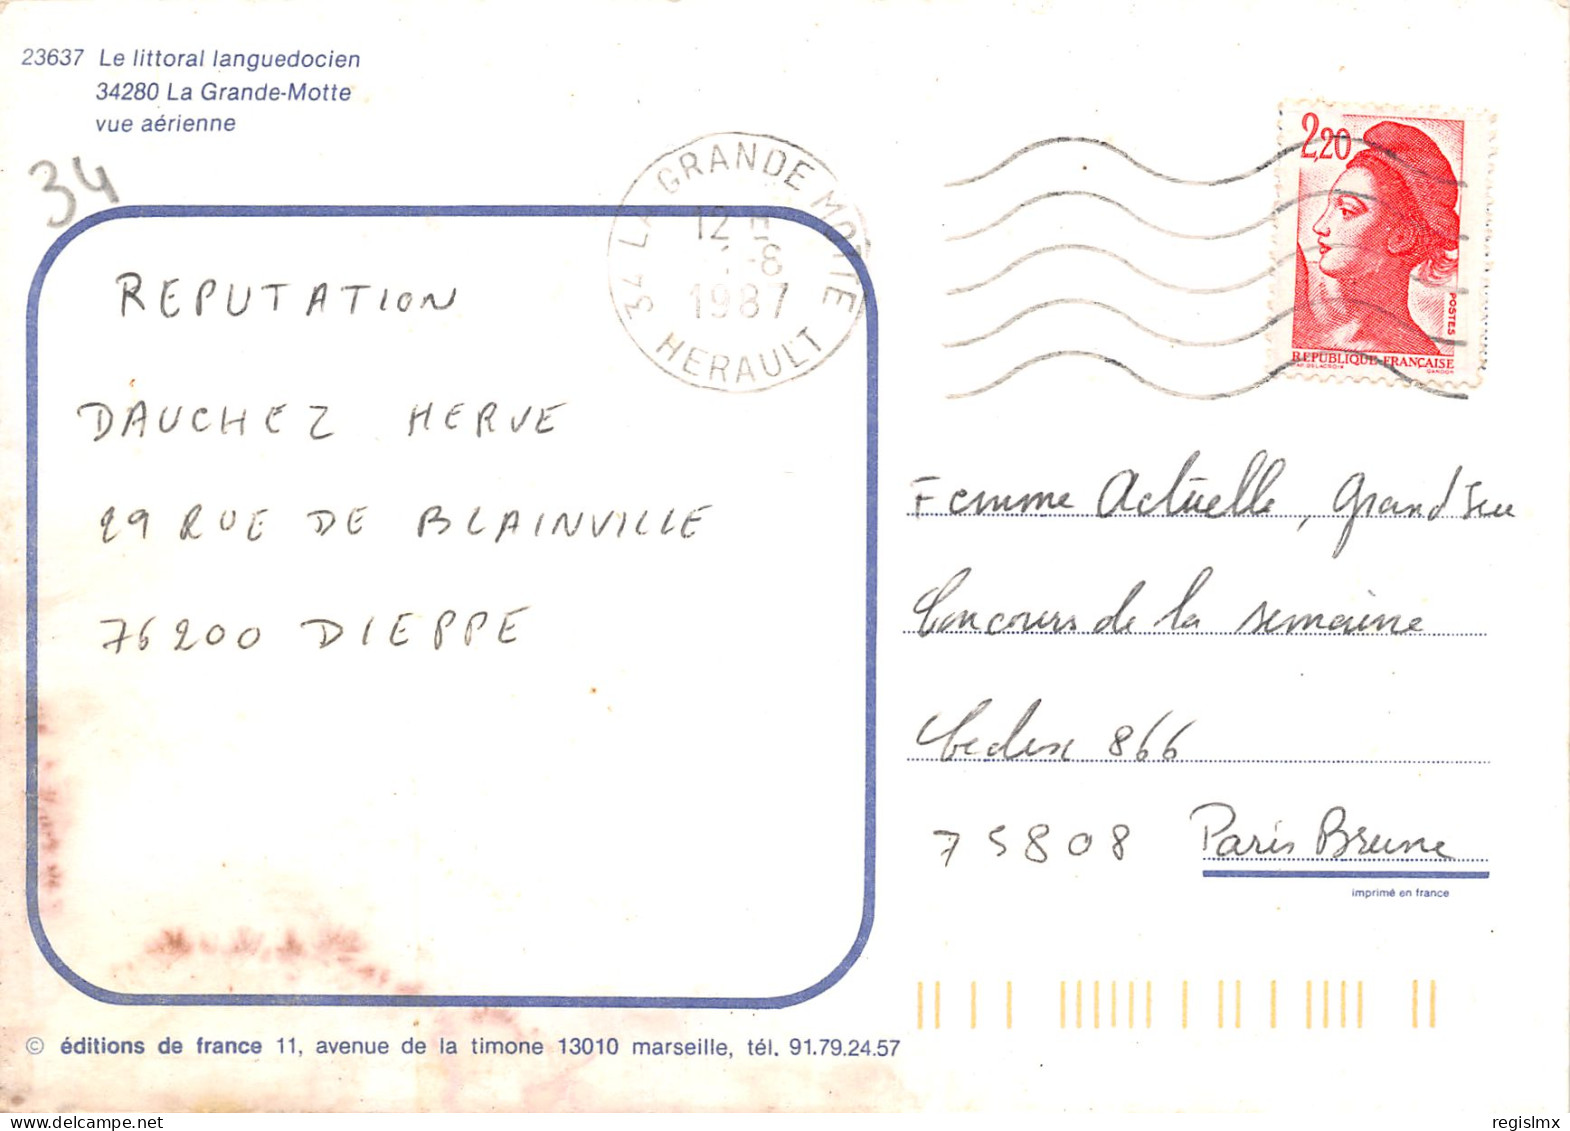 23637 Le littoral languedocien
34280 La Grande-Motte
vue aérienne
34
34 LA GRANDE MOTTE
12
-8
1987
HERAULT
2,20
POSTES
REPUBLIQUE FRANÇAISE
AP. DELACROIX GANDON
REPUTATION
DAUCHEZ HERVE
29 RUE DE BLAINVILLE
76200 DIEPPE
Femme Actuelle, Grand Jeu
Concours de la semaine
Cedex 866
75808 Paris Brune
imprimé en france
© éditions de france 11, avenue de la timone 13010 marseille, tél. 91.79.24.57
regislmx